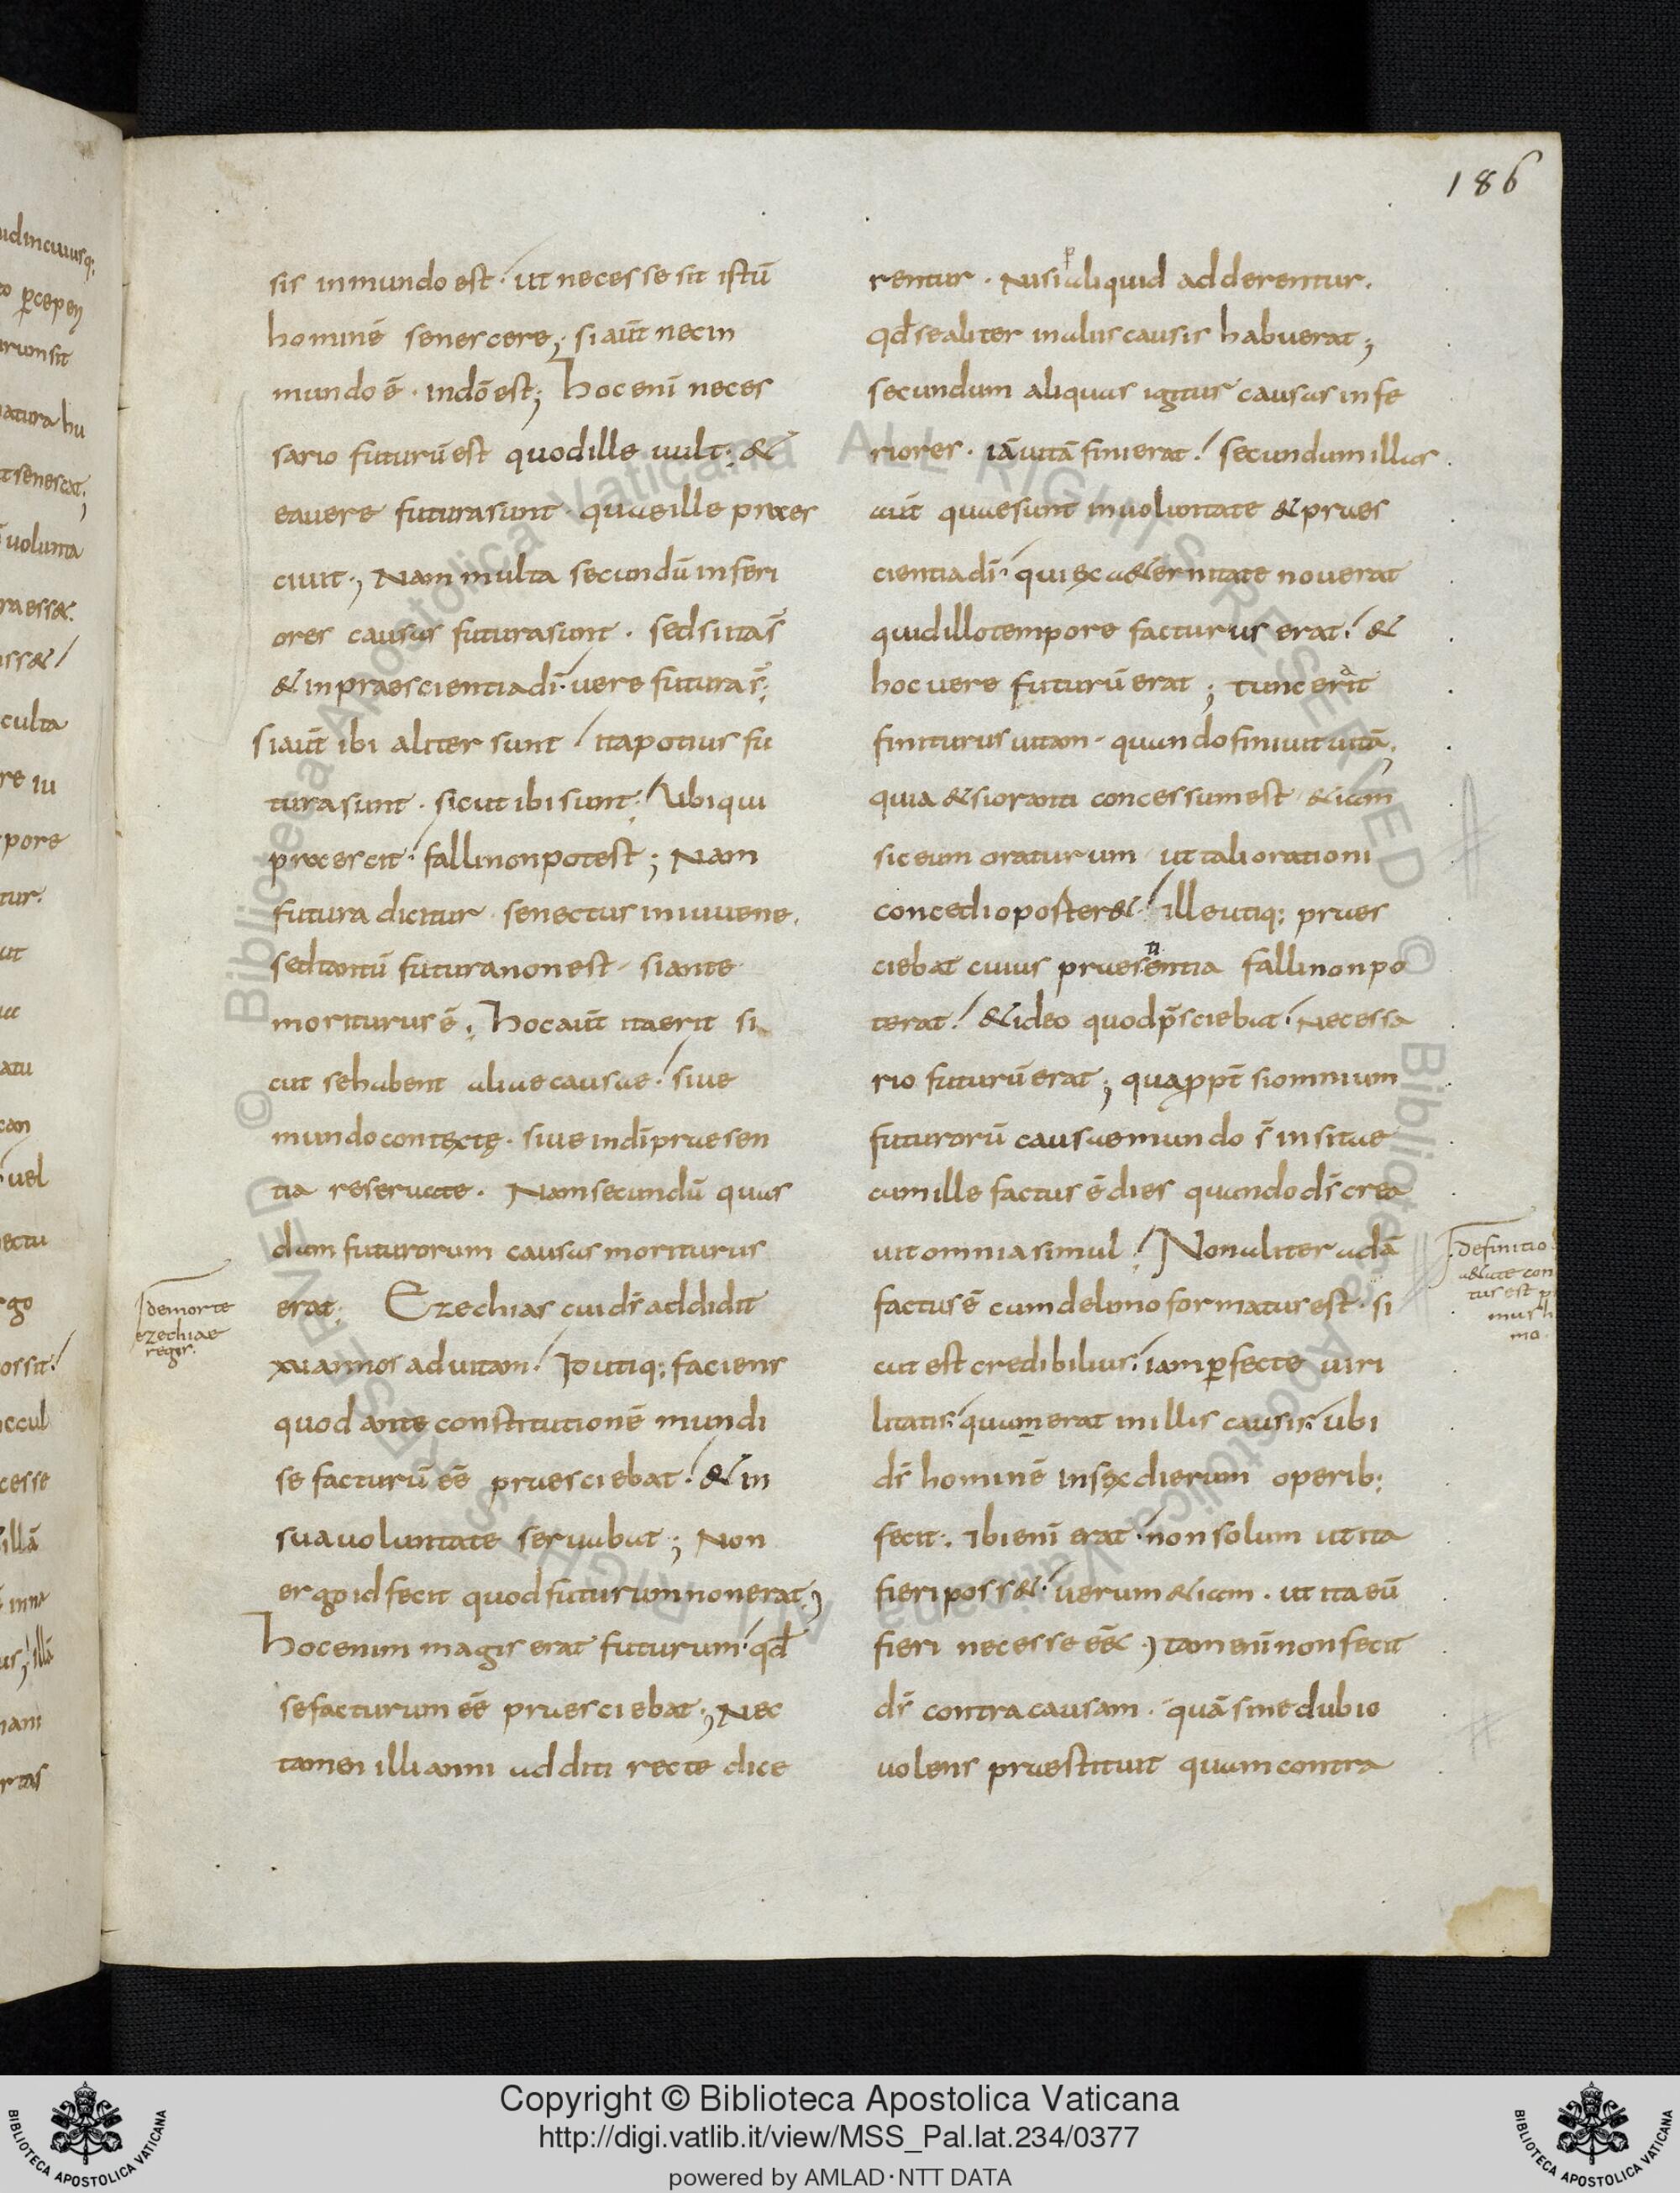 186
sis inmundo est· ut necesse sit istū
hominē senescere; si aūt necin
mundo ē· indō est; hoc enī neces
sario futurū est quod ille uult; &
ea uere futura sunt· quae ille praes
ciuit; Nam multa secundū inferi
ores causas futura sunt· sed si ita s̄
& in praescientia dī· uere futura s̄;
si aūt ibi aliter sunt ita potius fu
tura sunt· sicut ibi sunt; Ubi qui
praescit· falli non potest; Nam
futura dicitur senectus in iuuene·
sed tantū futura non est· si ante
moriturus ē; hoc aūt ita erit si
cut se habent aliae causae· siue
mundo contextę· siue in dī praesen
tia reseruate· Nam secundū quas
dam futurorum causas moriturus
erat; Ezechias cui dr̄ addidit
xv annos ad uitam· Id utiq; faciens
quod ante constitutionē mundi
se facturū eē praesciebat· & in
sua uoluntate seruabat; Non
ergo id fecit quod futurum non erat;
hoc enim magis erat futurum· qd̄
se facturum eē praesciebat; Nec
tamen illi anni additi recte dice
de morte
ezechiae
regis·
rentur· Nisi aliquid adderentur·
qd̄ se aliter in aliis causis habuerat;
secundum aliquas igitur causas infe
riores· iā uitā finierat· secundum illas
aūt quae sunt in uoluntate & praes
cientia dī· qui ex aeternitate nouerat
quid illo tempore facturus erat· &
hoc uere futurū erat; tunc erat
finiturus uitam· quando finiuit uitā;
quia & si oranti concessum est· &iam
sic eum oraturum ut tali orationi
concedi oporter&· ille utiq; praes
ciebat cuius praesentia falli non po
terat· & ideo quod p̄sciebat· necessa
rio futurū erat; quappt̄ si omnium
futurorū causae mundo s̄ insitae
cum ille factus ē dies quando ds̄ crea
uit omnia simul· Non aliter adā
factus ē cum de limo formatus est· si
cut est credibilius· iam pfecte uiri
litatis· quam erat in illis causis· ubi
ds̄ hominē in sex dierum operib;
fecit· Ibi enī erat· non solum ut ita
fieri poss&· uerum &iam· ut ita eū
fieri necesse eē&; tam enī non fecit
ds̄ contra causam· quā sine dubio
uolens praestituit quam contra
Definitio
Copyright © Biblioteca Apostolica Vaticana
http://digi.vatlib.it/view/MSS_Pal.lat.234/0377
powered by AMLAD·NTT DATA
BIBLIOTECA APOSTOLICA VATICANA
BIBLIOTECA APOSTOLICA VATICANA